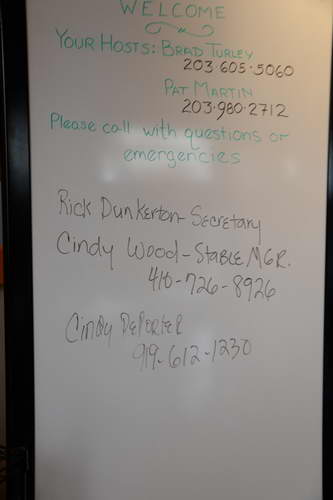 WELCOME
YOUR HOSTS: BRAD TURLEY
203·605·5060
PAT MARTIN
203·980·2712
Please call with questions or
emergencies
Rick Dunkerton-Secretary
Cindy Wood-Stable MGR.
410-726-8926
Cindy DePorter
919-612-1230